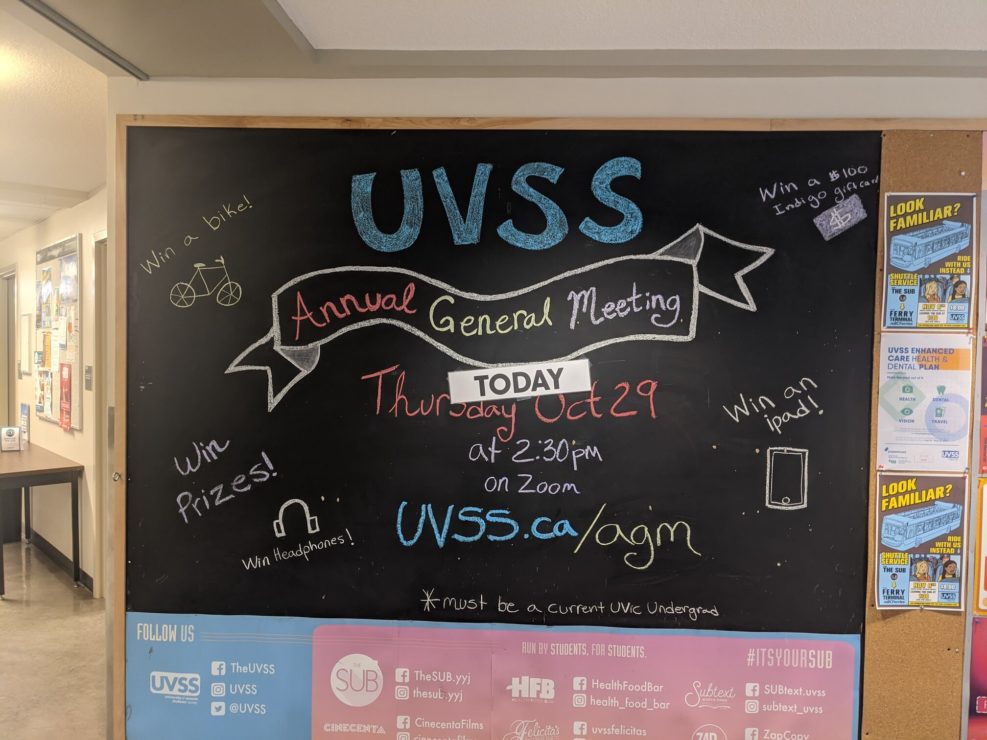 UVSS
Win a bike!
Win a $100
Indigo giftcard
$
Annual General Meeting
TODAY
Thursday Oct 29
at 2:30pm
on Zoom
UVSS.ca/agm
Win an
ipad!
Win
Prizes!
Win Headphones!
*must be a current UVic Undergrad
FOLLOW US
UVSS
TheUVSS
UVSS
@UVSS
RUN BY STUDENTS, FOR STUDENTS.
#ITSYOURSUB
THE
SUB
TheSUB.yyj
thesub.yyj
CINECENTA
CinecentaFilms
HFB
HealthFoodBar
health_food_bar
Felicita's
uvssfelicitas
Subtext
SUBtext.uvss
subtext_uvss
ZapCopy
LOOK
FAMILIAR?
RIDE
WITH US
INSTEAD
SHUTTLE
SERVICE
THE SUB
FERRY
TERMINAL
UVSS
UVSS ENHANCED
CARE HEALTH &
DENTAL PLAN
HEALTH
DENTAL
VISION
TRAVEL
UVSS
LOOK
FAMILIAR?
RIDE
WITH US
INSTEAD
SHUTTLE
SERVICE
THE SUB
FERRY
TERMINAL
UVSS